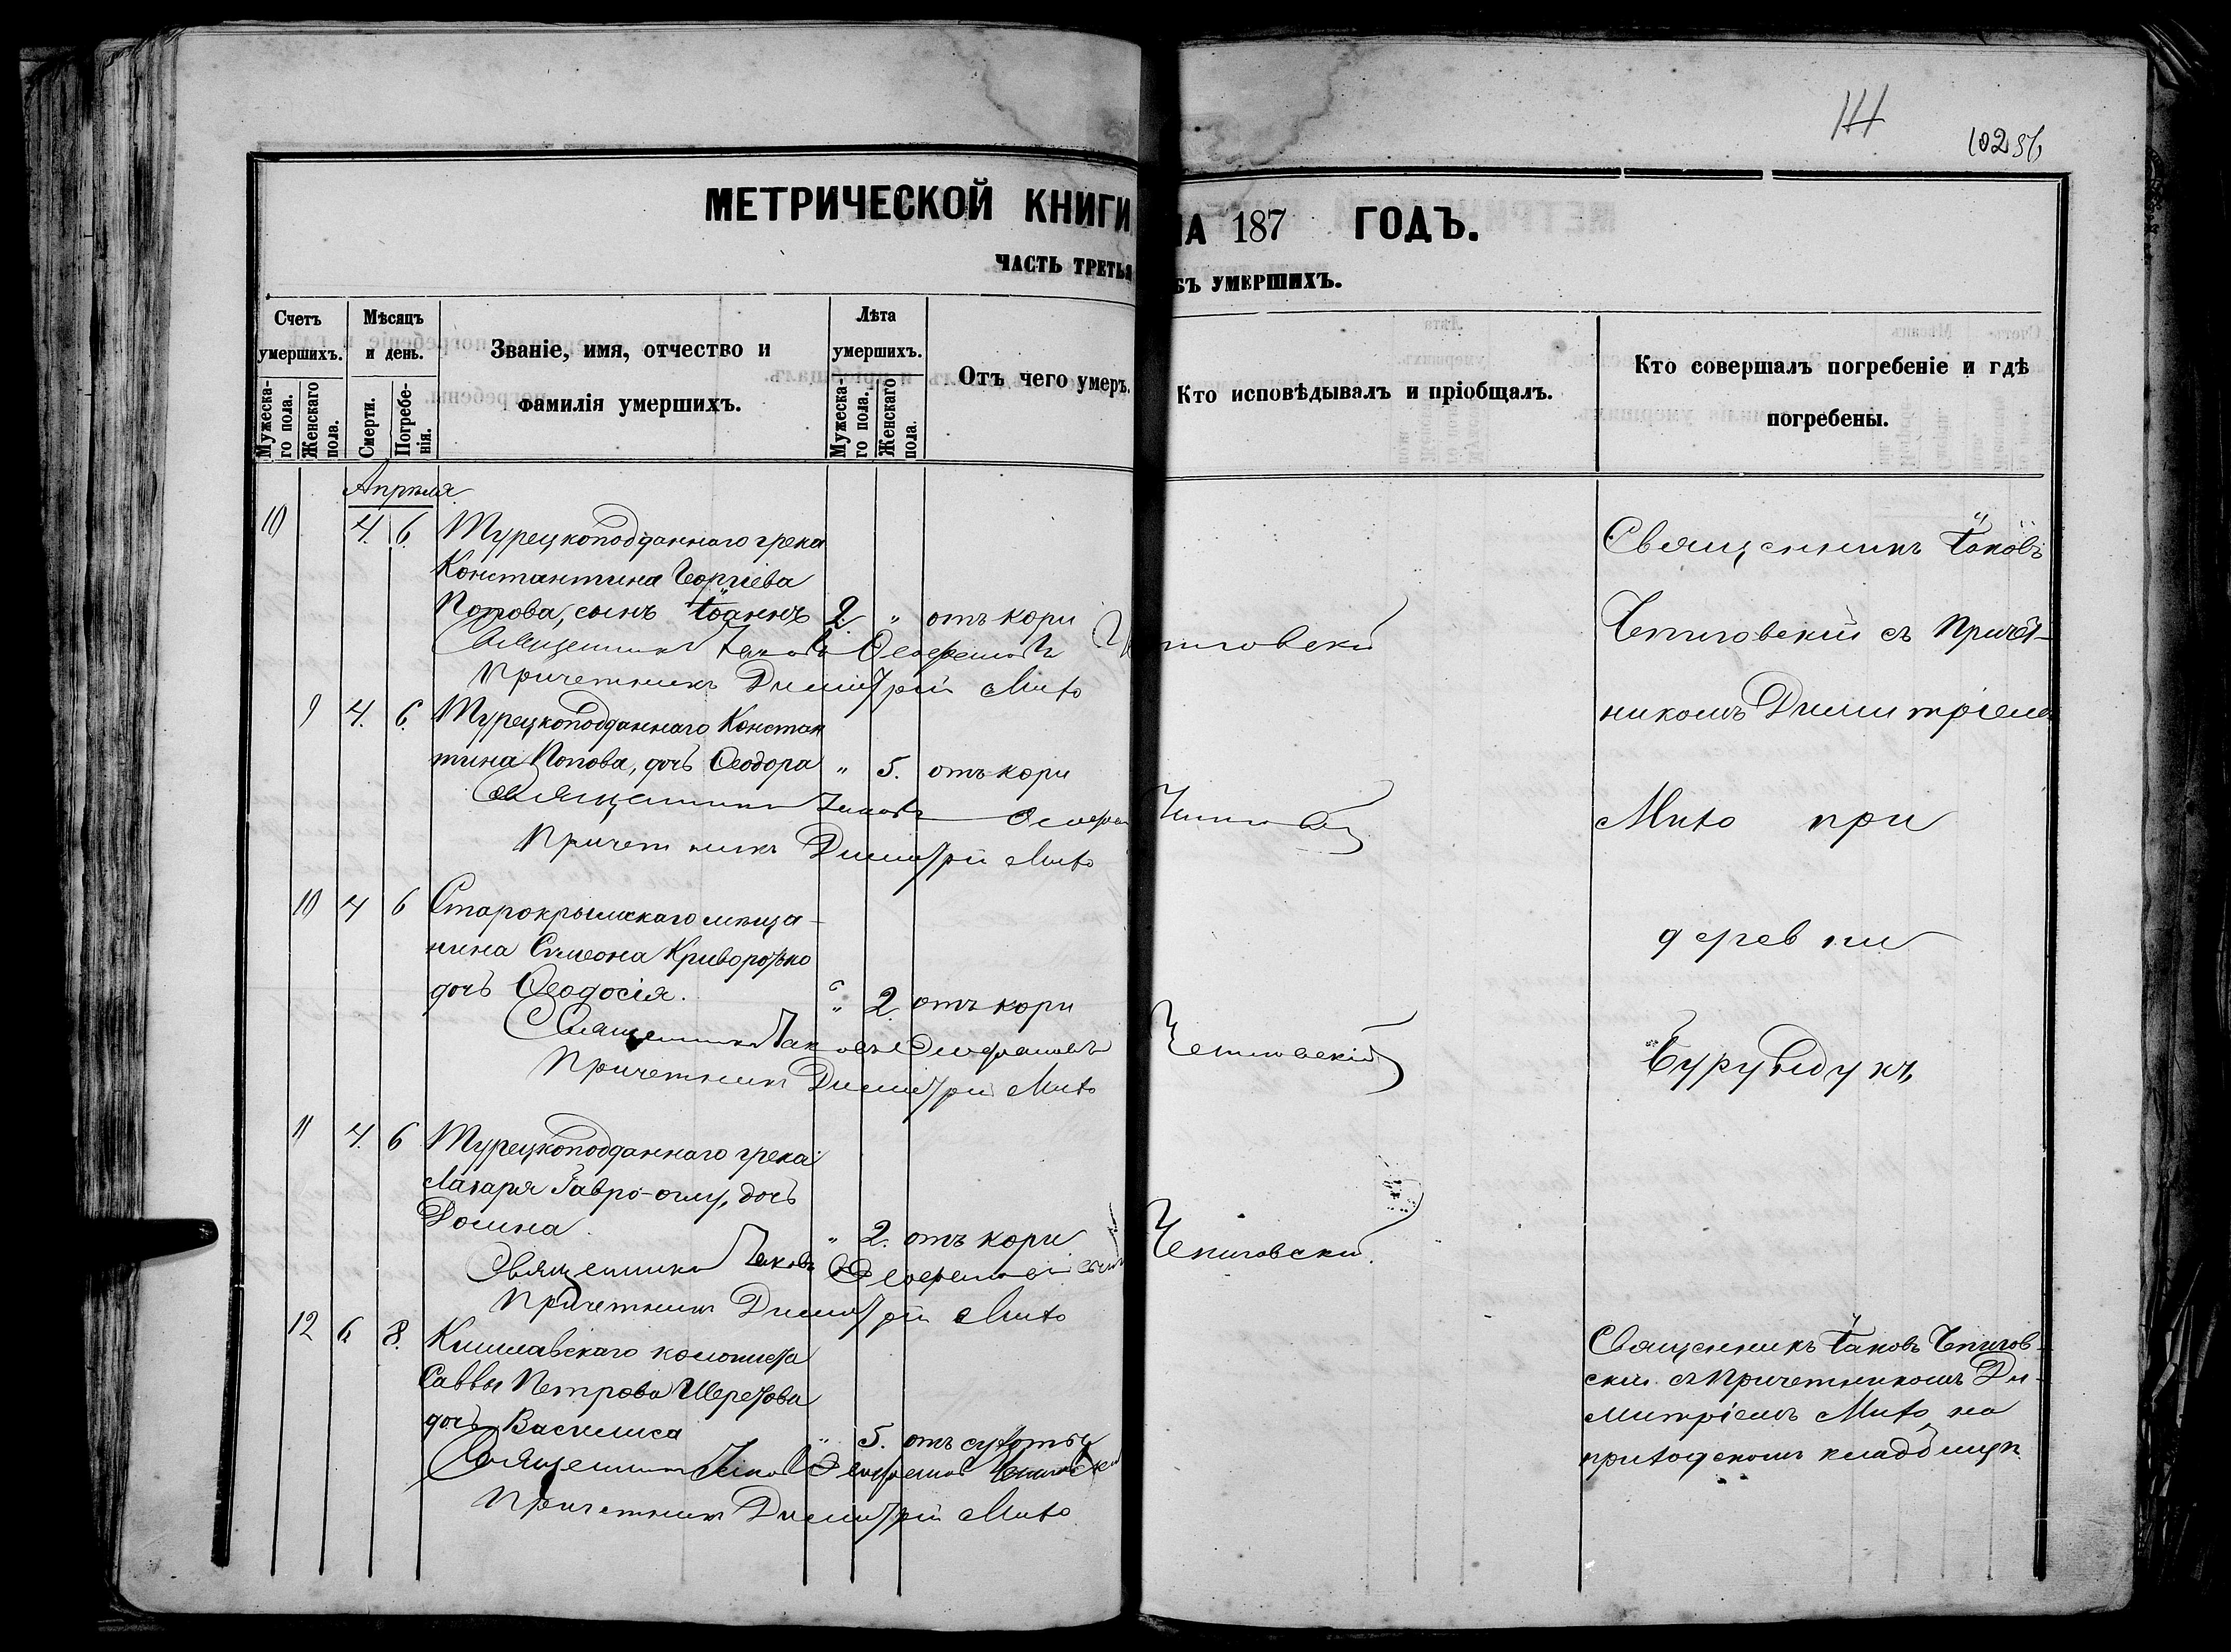 111
102 86
МЕТРИЧЕСКОЙ КНИГИ
НА 187 ГОДЪ.
ЧАСТЬ ТРЕТЬЯ
БЪ УМЕРШИХЪ.
Счетъ умершихъ.
Мужеска-го пола.
Женскаго пола.
Мѣсяцъ и день.
Смерти.
Погребе-нія.
Званіе, имя, отчество и фамилія умершихъ.
Лѣта умершихъ.
Мужеска-го пола.
Женскаго пола.
Отъ чего умеръ.
Кто исповѣдывалъ и пріобщалъ.
Кто совершалъ погребеніе и гдѣ погребены.
Апрѣля
10 4. 6. Турецкоподданнаго грека
Константина Георгіева
Попова, сынъ Іоаннъ 2. " отъ кори
Священникъ Іаковъ
Причетникъ Димитрій Михо
9 4. 6. Турецкоподданнаго Констан
тина Попова, дочь Ѳеодора " 5. отъ кори
Священникъ Іаковъ
Причетникъ Димитрій Михо
10 4 6 Старокрымскаго мѣща-
нина Симеона Криворотько
дочь Ѳеодосія. " 2. отъ кори
Священникъ Іаковъ Чепиговскій
Причетникъ Димитрій Михо
11 4. 6 Турецкоподданнаго грека
Лазаря Завро-оглу, дочь
Домна " 2. отъ кори
Священникъ Іаковъ Чепиговскій
Причетникъ Димитрій Михо
12 6. 8. Кишлавскаго колониста
Саввы Петрова Шерезова
дочь Василиса " 5. отъ сухоты
Священникъ Іаковъ Чепиговскій
Причетникъ Димитрій Михо
Священникъ Іаковъ
Чепиговскій съ Причет-
никомъ Димитріемъ
Михо при
деревни
Бурундукъ
Священникъ Іаковъ Чепигов-
скій съ Причетникомъ Ди-
митріемъ Михо на
приходскомъ кладбищѣ